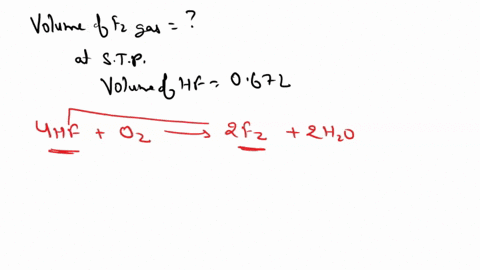 Volume of F2 gas = ?
at S.T.P.
Volume of HF = 0.672
4HF + O2 → 2F2 + 2H2O